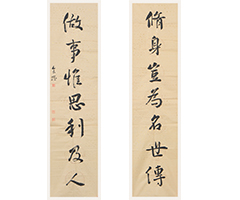 脩身豈為名世傳
做事惟思利及人